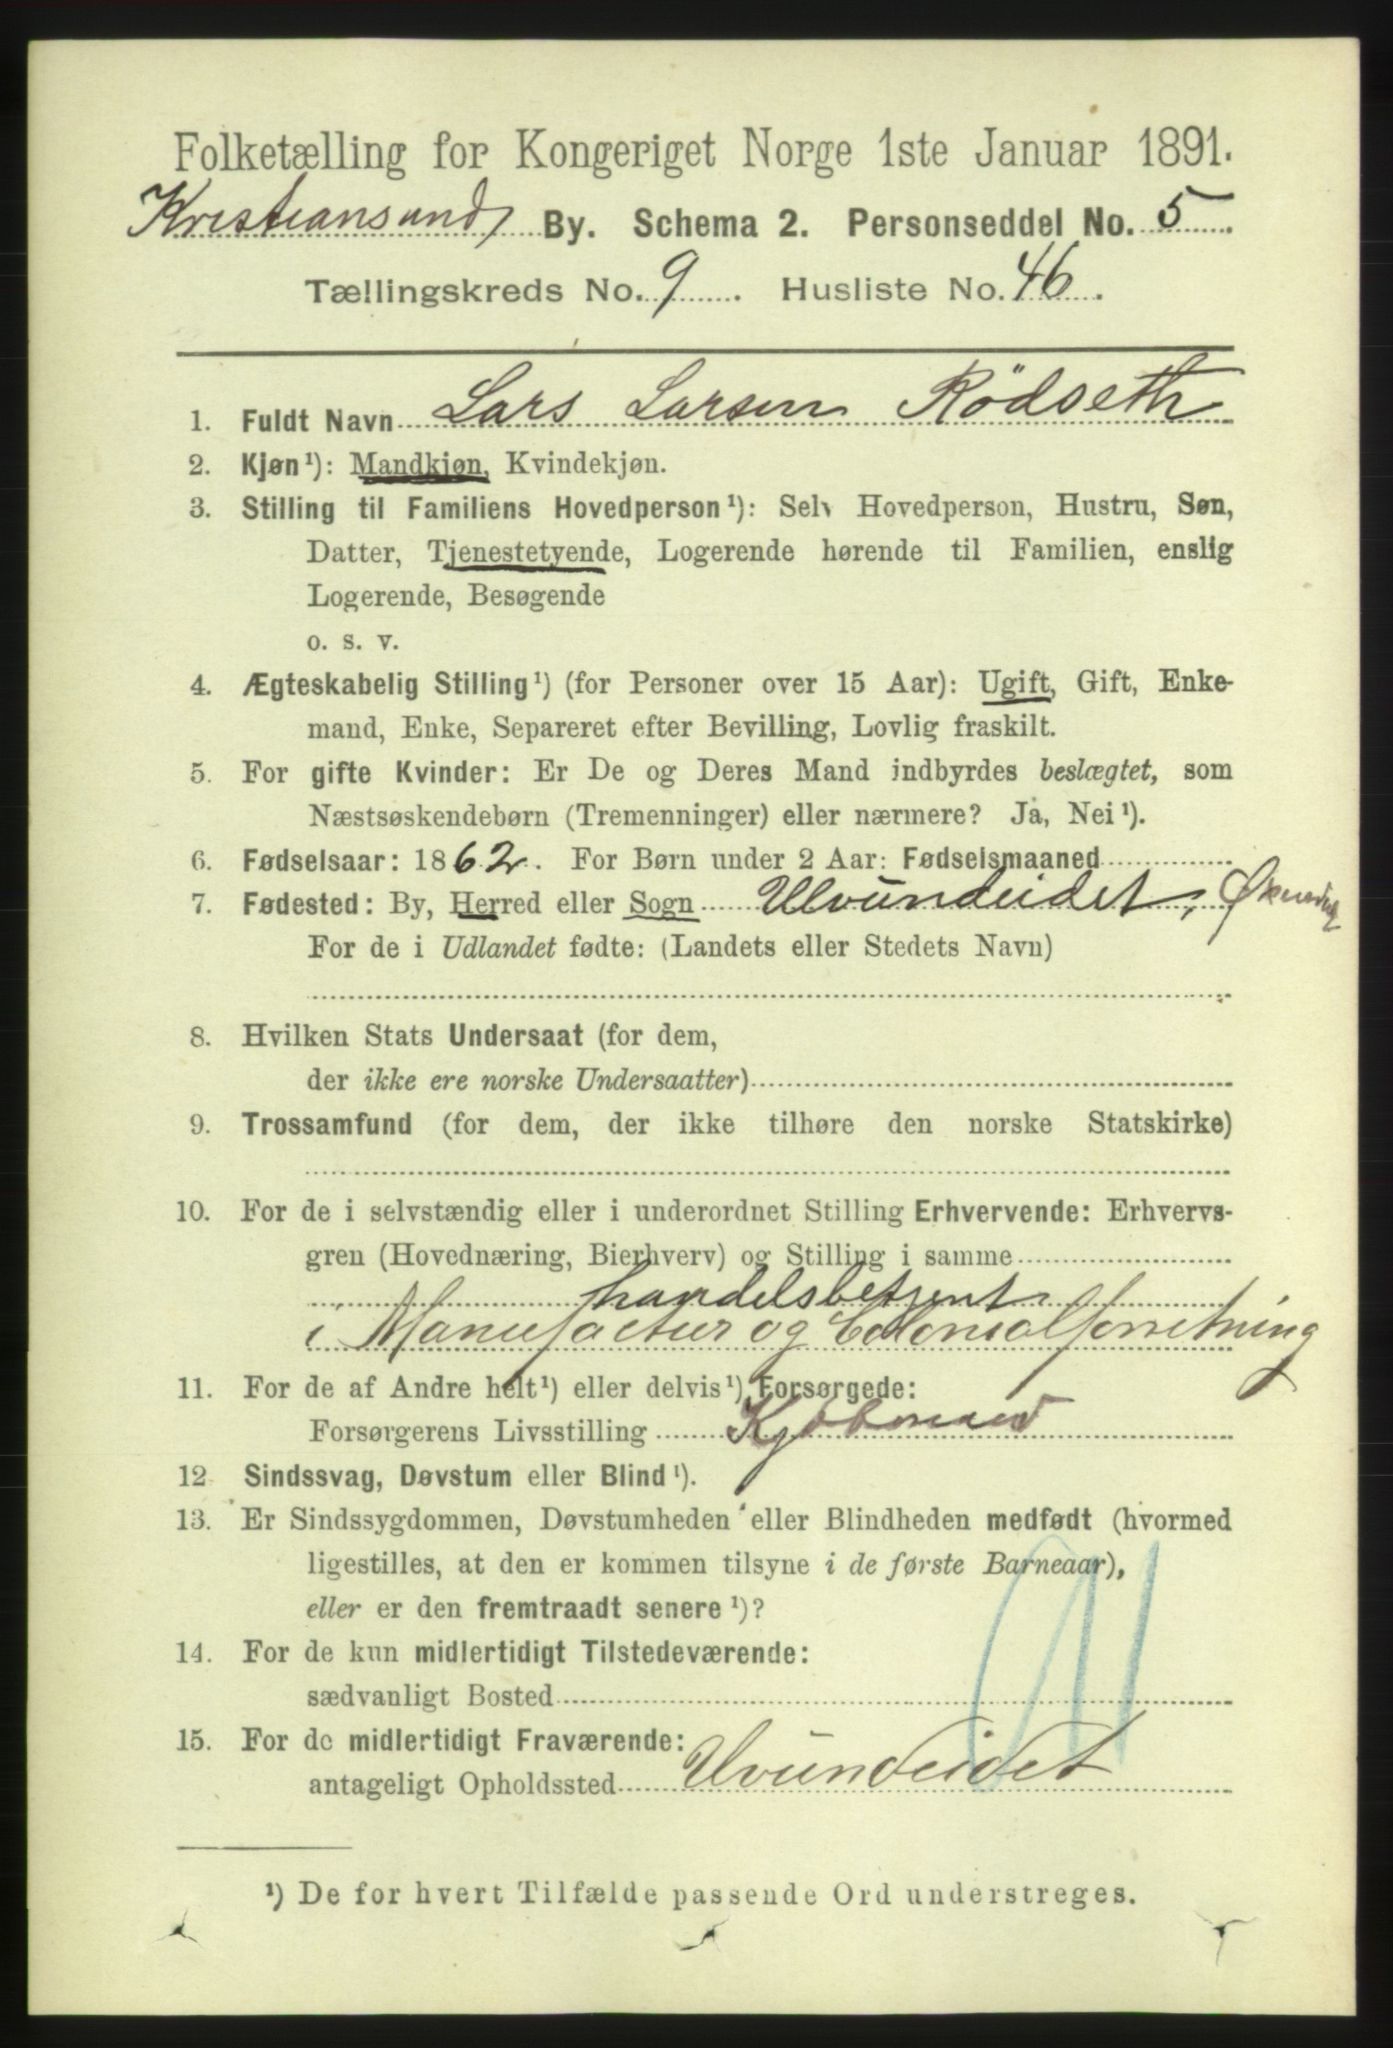 Folketælling for Kongeriget Norge 1ste Januar 1891.
Kristiansund By. Schema 2. Personseddel No. 5.
Tællingskreds No. 9. Husliste No. 46.
1. Fuldt Navn Lars Larsen Rödseth
2. Kjøn¹): Mandkjøn, Kvindekjøn.
3. Stilling til Familiens Hovedperson¹): Selv Hovedperson, Hustru, Søn,
Datter, Tjenestetyende, Logerende hørende til Familien, enslig
Logerende, Besøgende
o. s. v.
4. Ægteskabelig Stilling¹) (for Personer over 15 Aar): Ugift, Gift, Enke-
mand, Enke, Separeret efter Bevilling, Lovlig fraskilt.
5. For gifte Kvinder: Er De og Deres Mand indbyrdes beslægtet, som
Næstsøskendebørn (Tremenninger) eller nærmere? Ja, Nei¹).
6. Fødselsaar: 1862. For Børn under 2 Aar: Fødselsmaaned
7. Fødested: By, Herred eller Sogn Ulvundeidet,
For de i Udlandet fødte: (Landets eller Stedets Navn)
8. Hvilken Stats Undersaat (for dem,
der ikke ere norske Undersaatter)
9. Trossamfund (for dem, der ikke tilhøre den norske Statskirke)
10. For de i selvstændig eller i underordnet Stilling Erhvervende: Erhvervs-
gren (Hovednæring, Bierhverv) og Stilling i samme
handelsbetjent
i Manufactur og Colonialforretning
11. For de af Andre helt¹) eller delvis¹) Forsørgede:
Forsørgerens Livsstilling Kjøbmand
12 Sindssvag, Døvstum eller Blind¹).
13. Er Sindssygdommen, Døvstumheden eller Blindheden medfødt (hvormed
ligestilles, at den er kommen tilsyne i de første Barneaar),
eller er den fremtraadt senere¹)?
14. For de kun midlertidigt Tilstedeværende:
sædvanligt Bosted
15. For de midlertidigt Fraværende:
antageligt Opholdssted Ulvundeidet
¹) De for hvert Tilfælde passende Ord understreges.